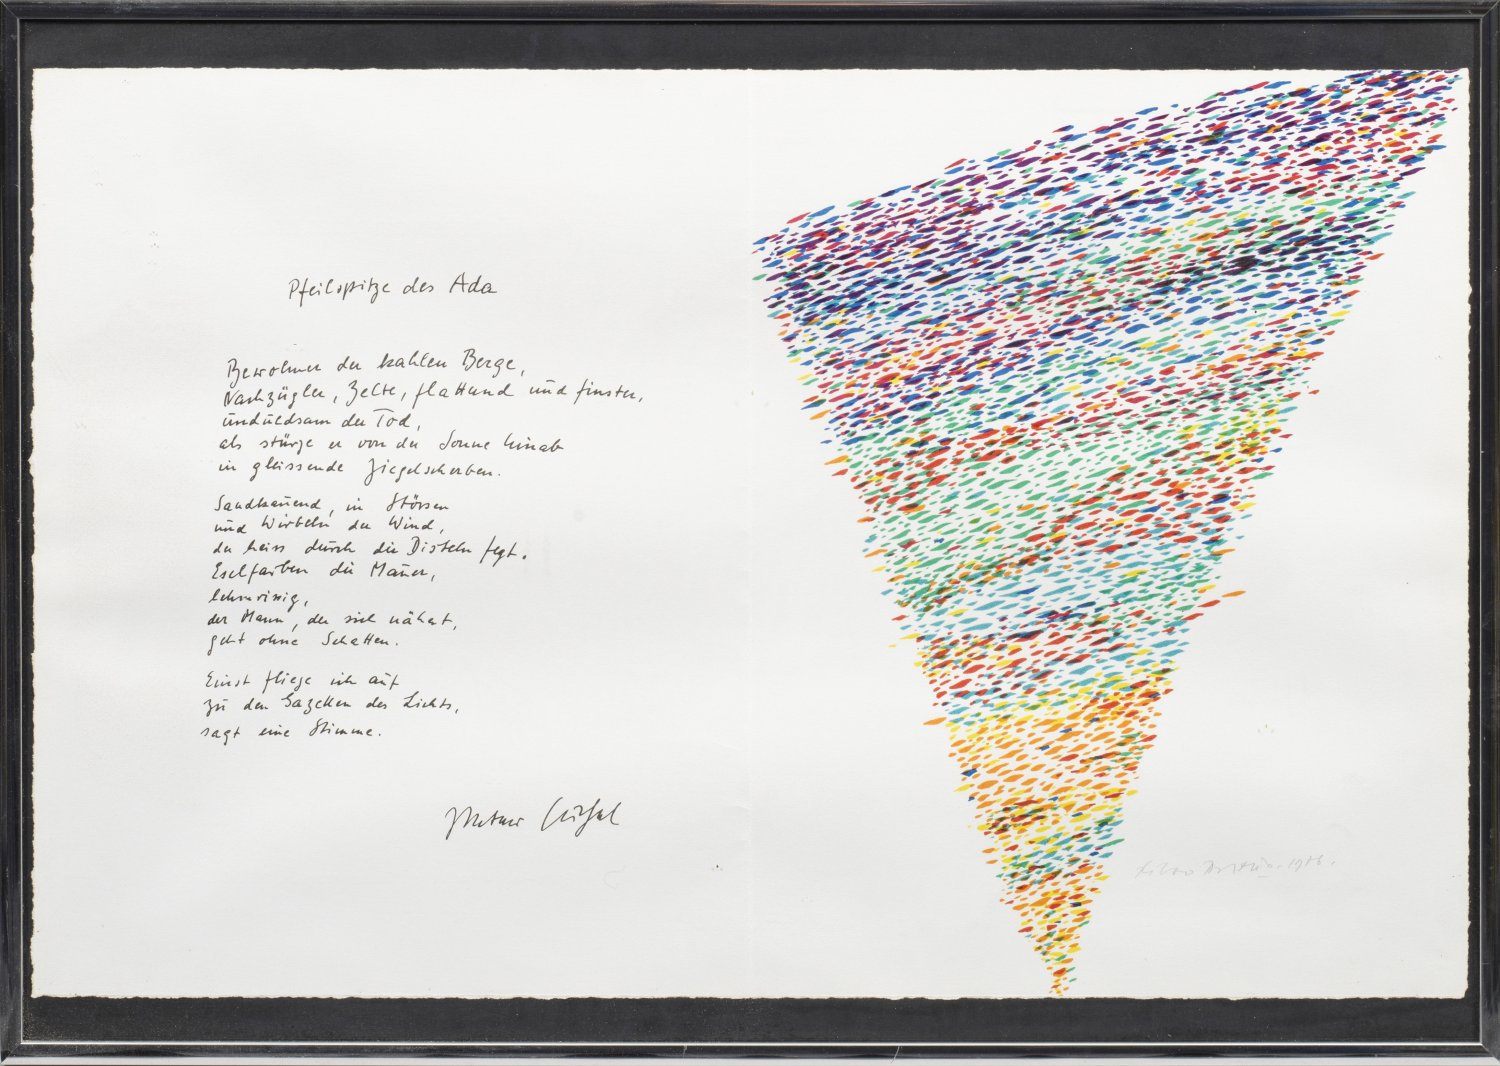 Pfeilspitze des Ada
Bewohner der kahlen Berge,
Nachzügler, Zelte, flatternd und finster,
unduldsam der Tod,
als stürze er von der Sonne hinab
in gleissende Ziegelscherben.
Sandkauend, in Stössen
und Wirbeln der Wind,
der heiss durch die Disteln fegt.
Eselfarben die Mauer,
lehmrissig,
der Mann, der sich nähert,
geht ohne Schatten.
Einst fliege ich auf
zu den Gazellen des Lichts,
sagt eine Stimme.
1986.